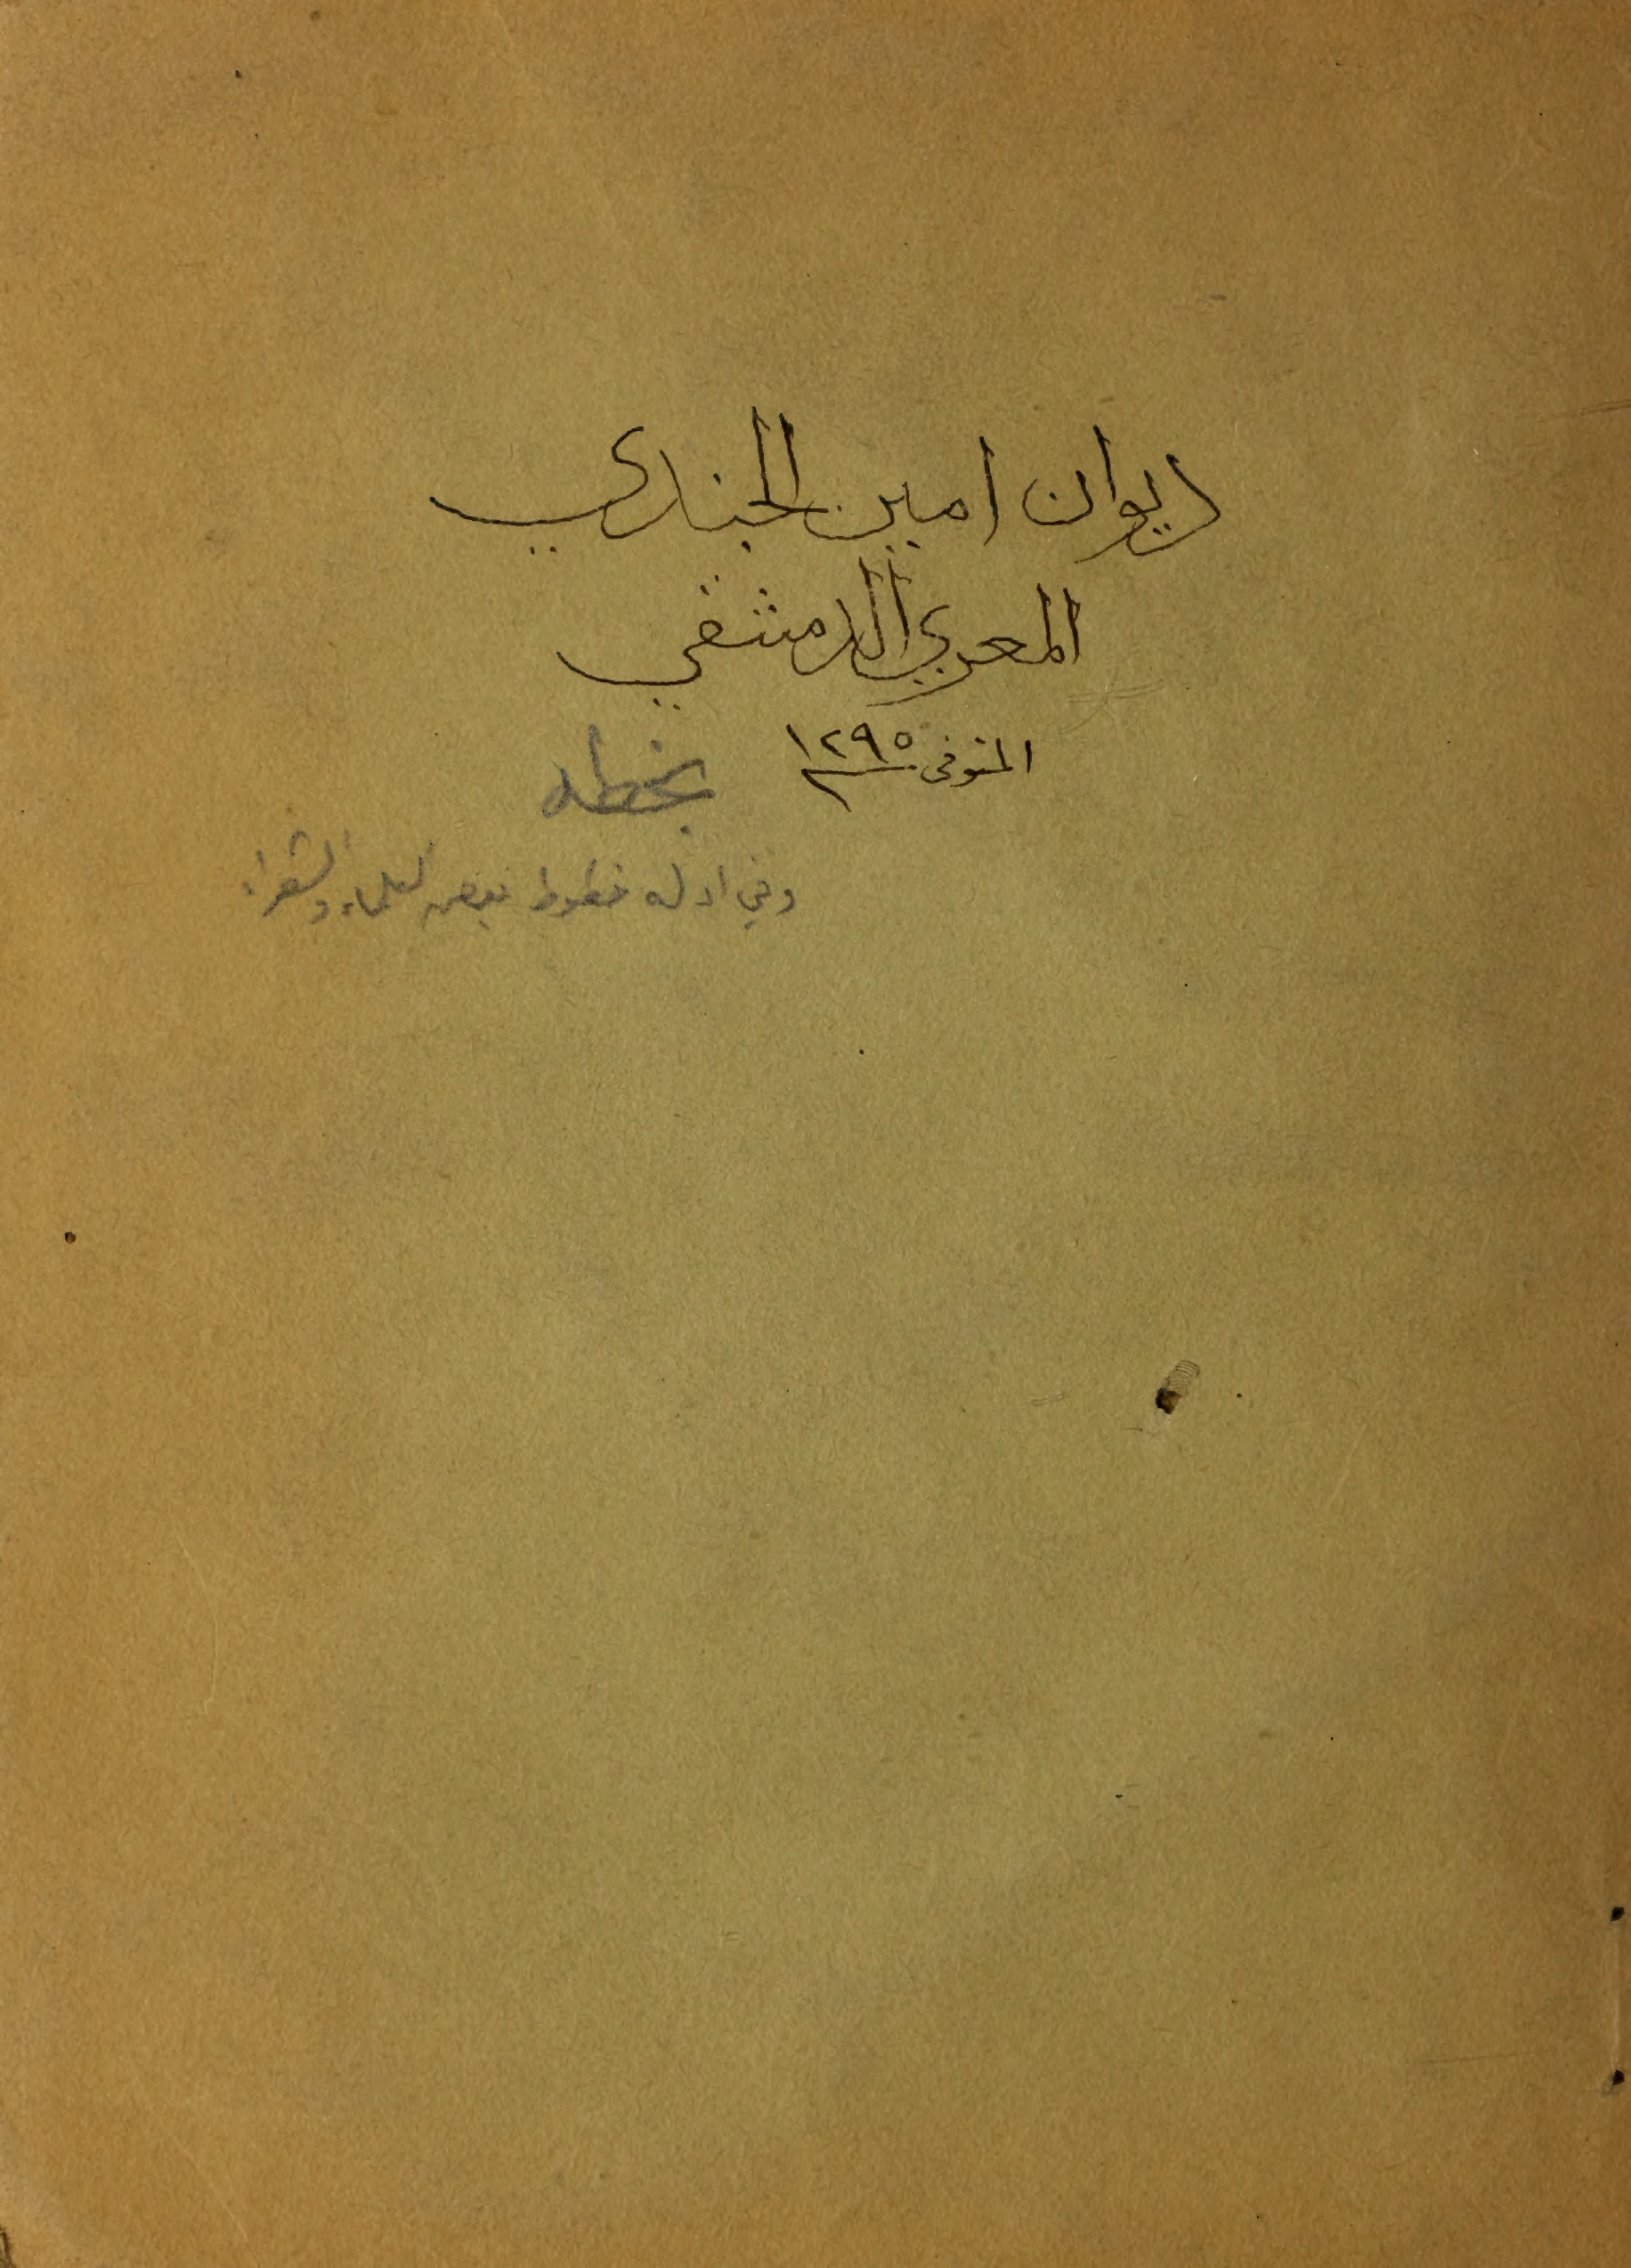 ديوان امين الجندي
المعري الدمشقي
المتوفى سنة ١٢٩٥
بخطه
وفي اوله خطوط بعض العلماء والشعراء